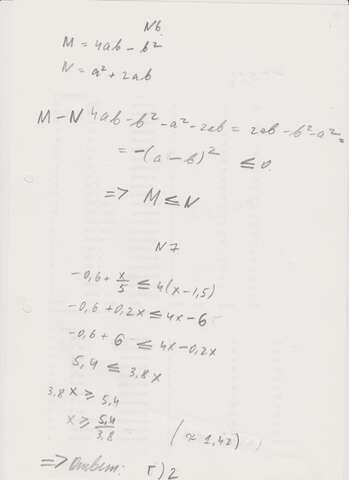 N6
M = 4ab - b²
N = a² + 2ab
M - N 4ab - b² - a² - 2ab = 2ab - b² - a² =
= -(a - b)² ≤ 0.
=> M ≤ N
N7
-0,6 + x/5 ≤ 4(x - 1,5)
-0,6 + 0,2x ≤ 4x - 6
-0,6 + 6 ≤ 4x - 0,2x
5,4 ≤ 3,8x
3,8x ≥ 5,4
x ≥ 5,4/3,8 (≈ 1,42)
=> Ответ: г) 2